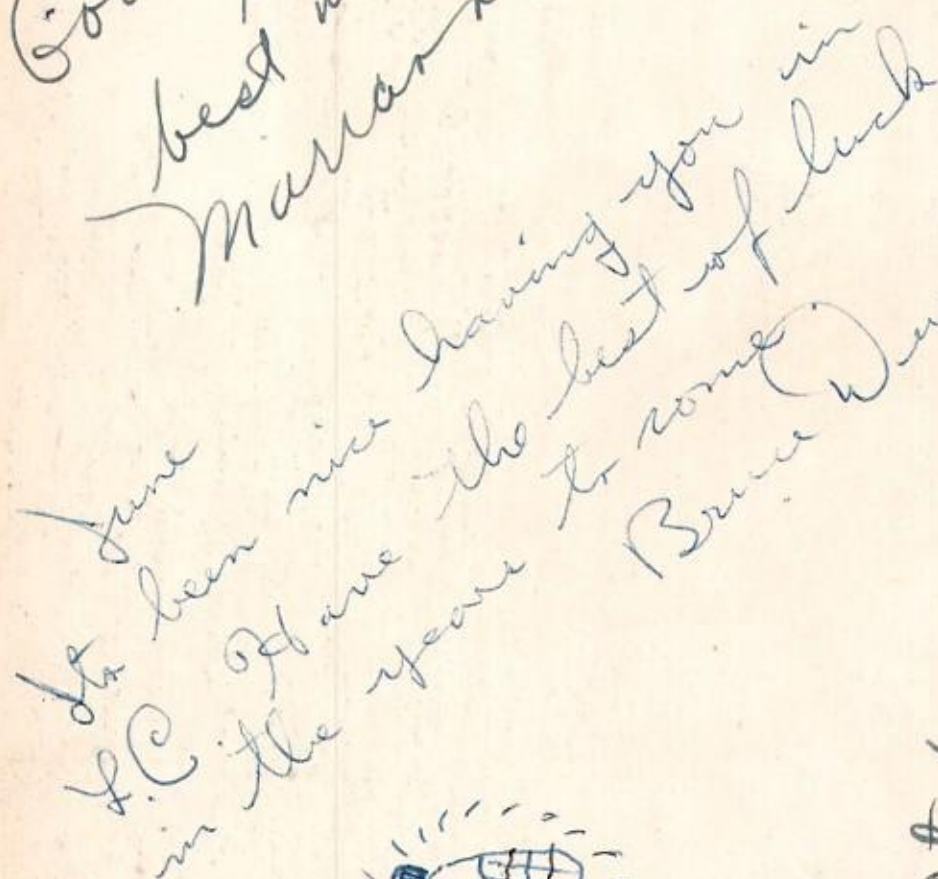 best
June
Its been nice having you in
L.C Have the best of luck
in the years to come.
Bruce